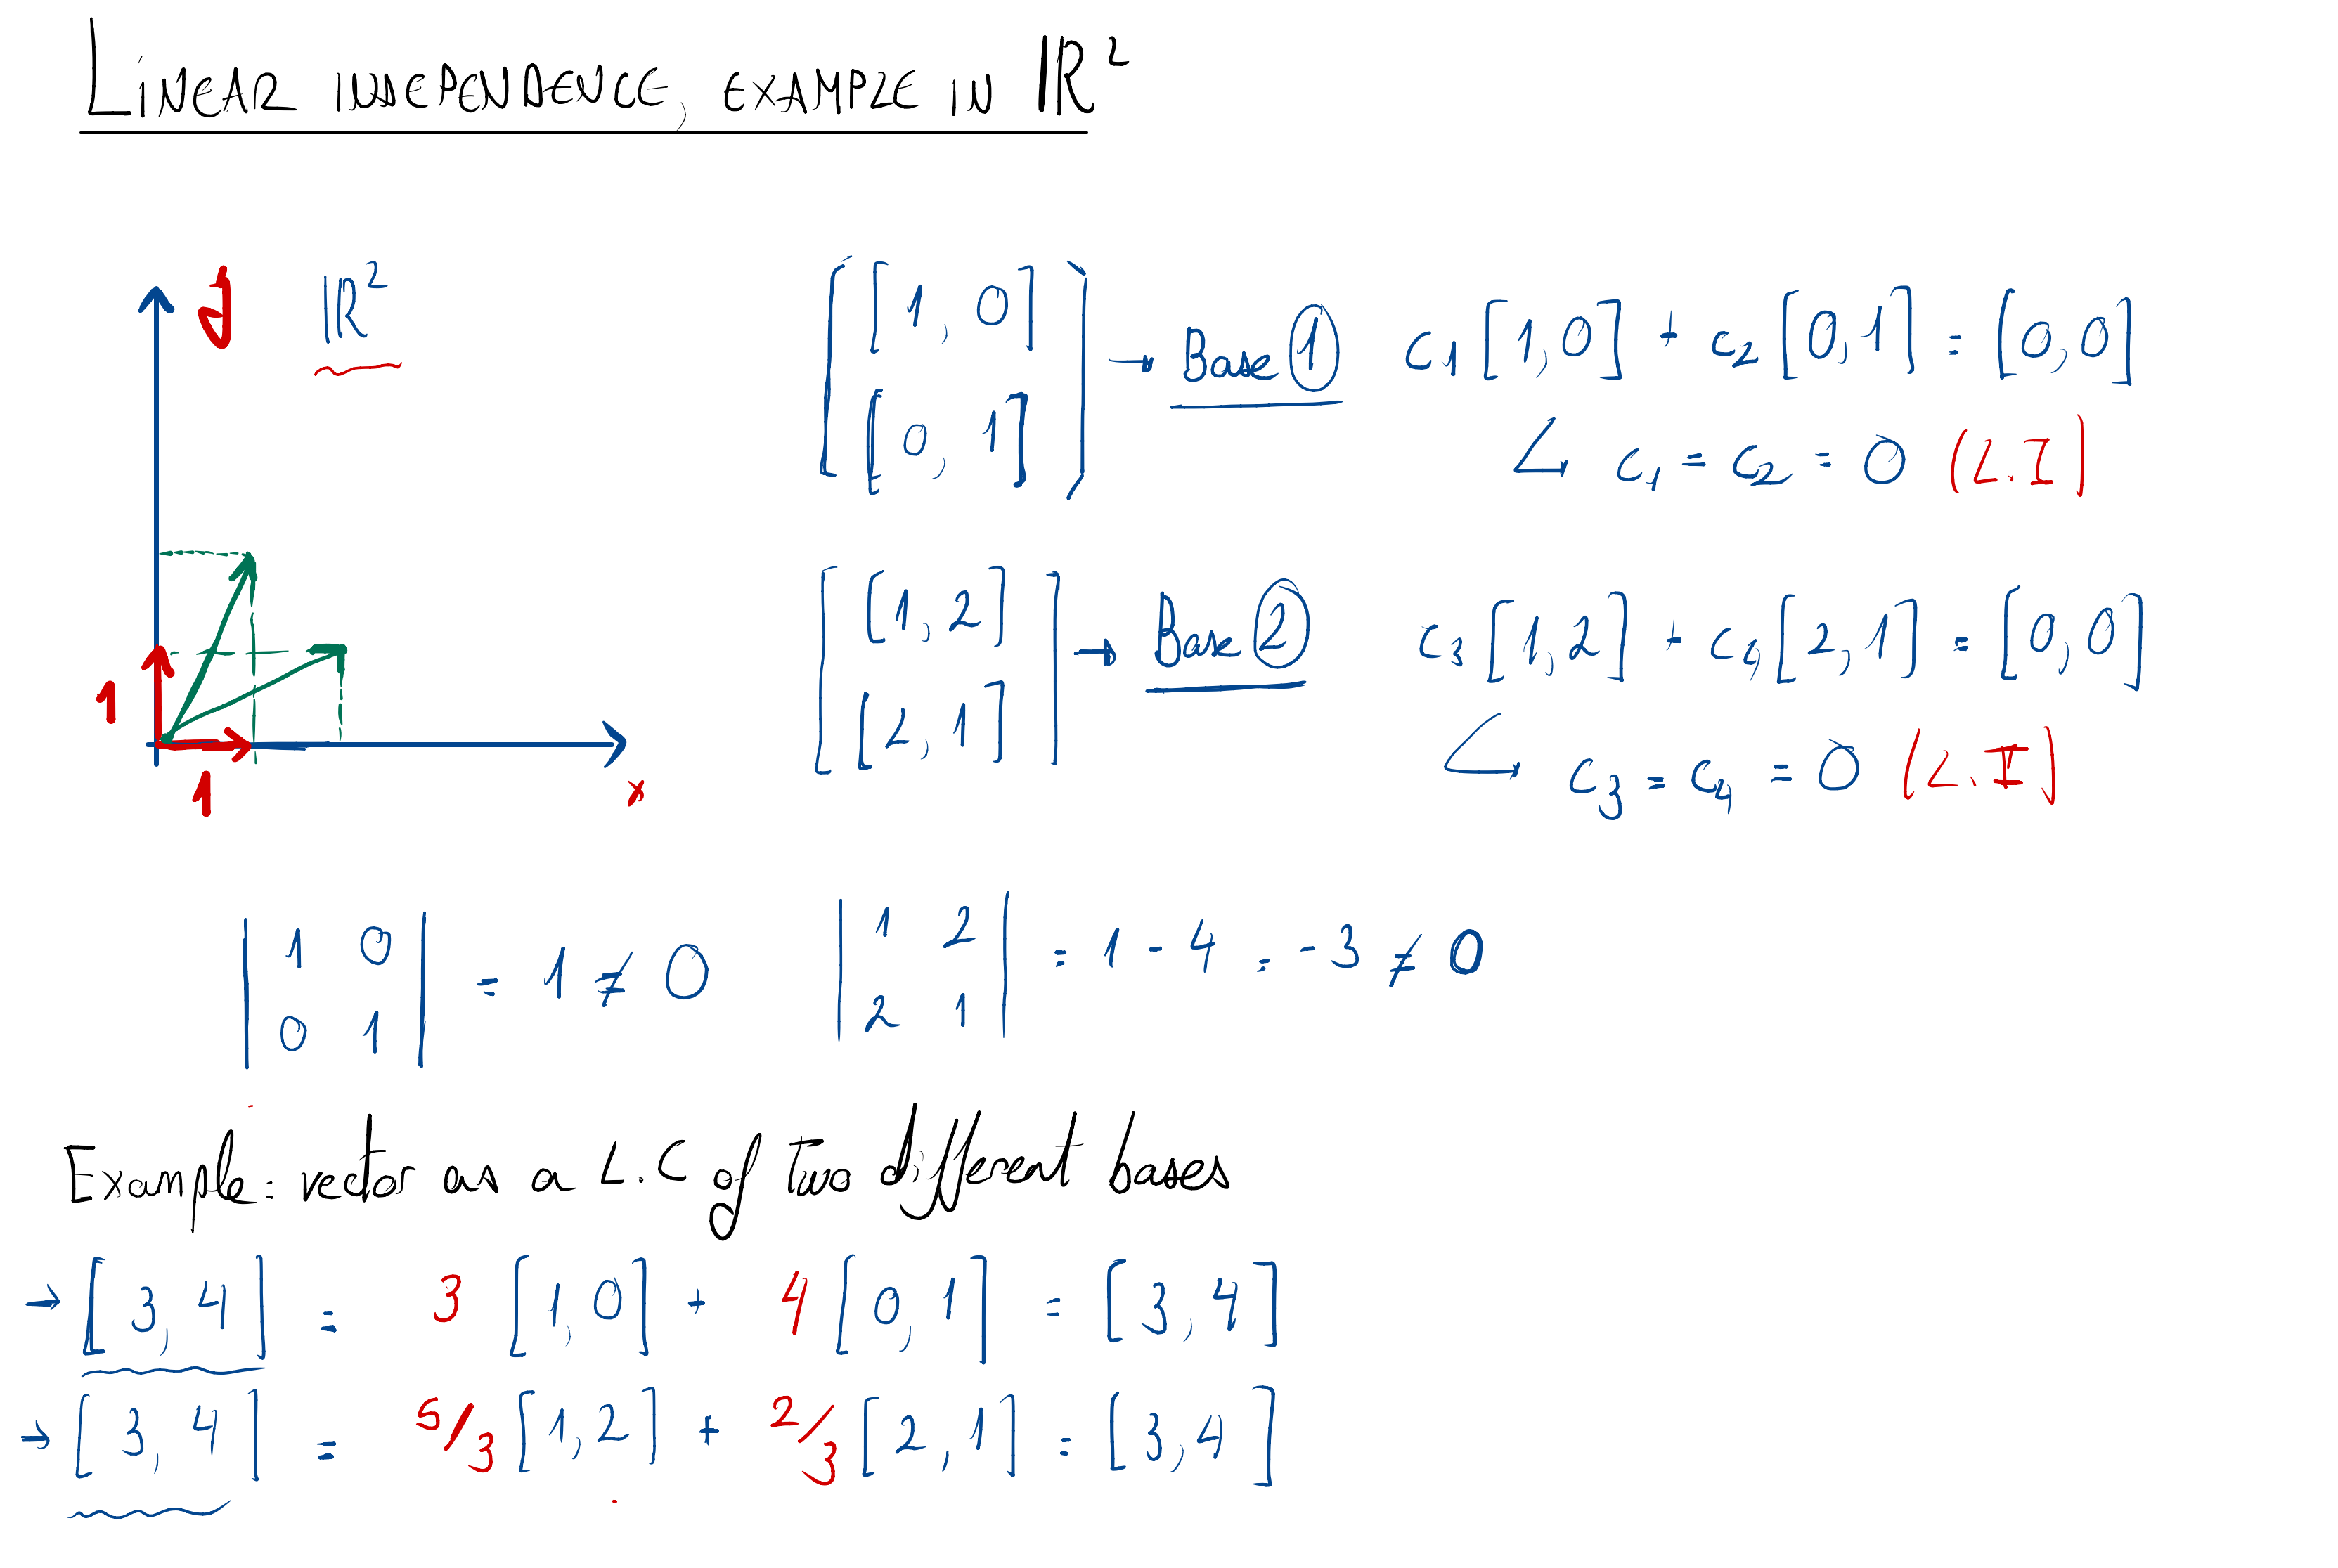 LINEAR INDEPENDENCE, EXAMPLE IN ℝ²
y
ℝ²
1
1
x
[[1, 0]
[0, 1]] → Base ①
c₁ [1,0] + c₂ [0,1] = [0,0]
↳ c₁ = c₂ = 0 (L.I)
[[1, 2]
[2, 1]] → Base ②
c₃ [1,2] + c₄ [2,1] = [0,0]
↳ c₃ = c₄ = 0 (L.I)
|1 0|
|0 1| = 1 ≠ 0
|1 2|
|2 1| = 1 - 4 = -3 ≠ 0
Example: vector as a L.C of two different bases
→ [3, 4] = 3 [1,0] + 4 [0,1] = [3,4]
→ [3, 4] = 5/3 [1,2] + 2/3 [2,1] = [3,4]